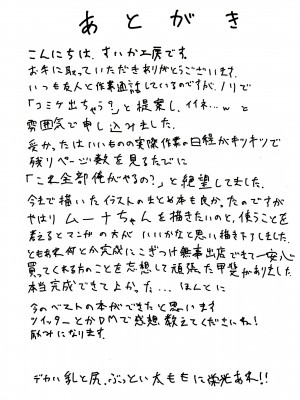 あとがき
こんにちは、すいか工房です。
お手に取っていただきありがとうございます。
いつも友人と作業通話しているのですが、ノリで
「コミケ出ちゃう?」と提案し、イイネ…w と
雰囲気で申し込みました。
受かったはいいものの実際作業の日程がキツキツで
残りページ数を見るたびに
「これ全部俺がやるの?」と絶望してました。
今まで描いたイラストのまとめ本も良かったのですが
やはりムーナちゃんを描きたいのと、使うことを
考えるとマンガの方がいいかなと思い描き下ろしました。
ともあれ何とか完成にこぎつけ無事出店できて一安心
買ってくれる方のことを妄想して頑張った甲斐がありました。
本当完成できて良かった… ほんとに
今のベストの本ができたと思います
ツイッターとかDMで感想教えてくださいね!
励みになります。
デカい乳と尻、ぶっとい太ももに栄光あれ!!